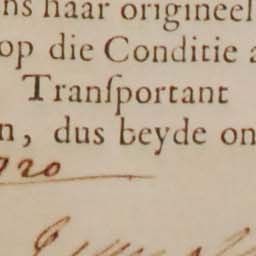 ns haar origineel
op die Conditie a
Tranſportant
n, dus beyde on
920